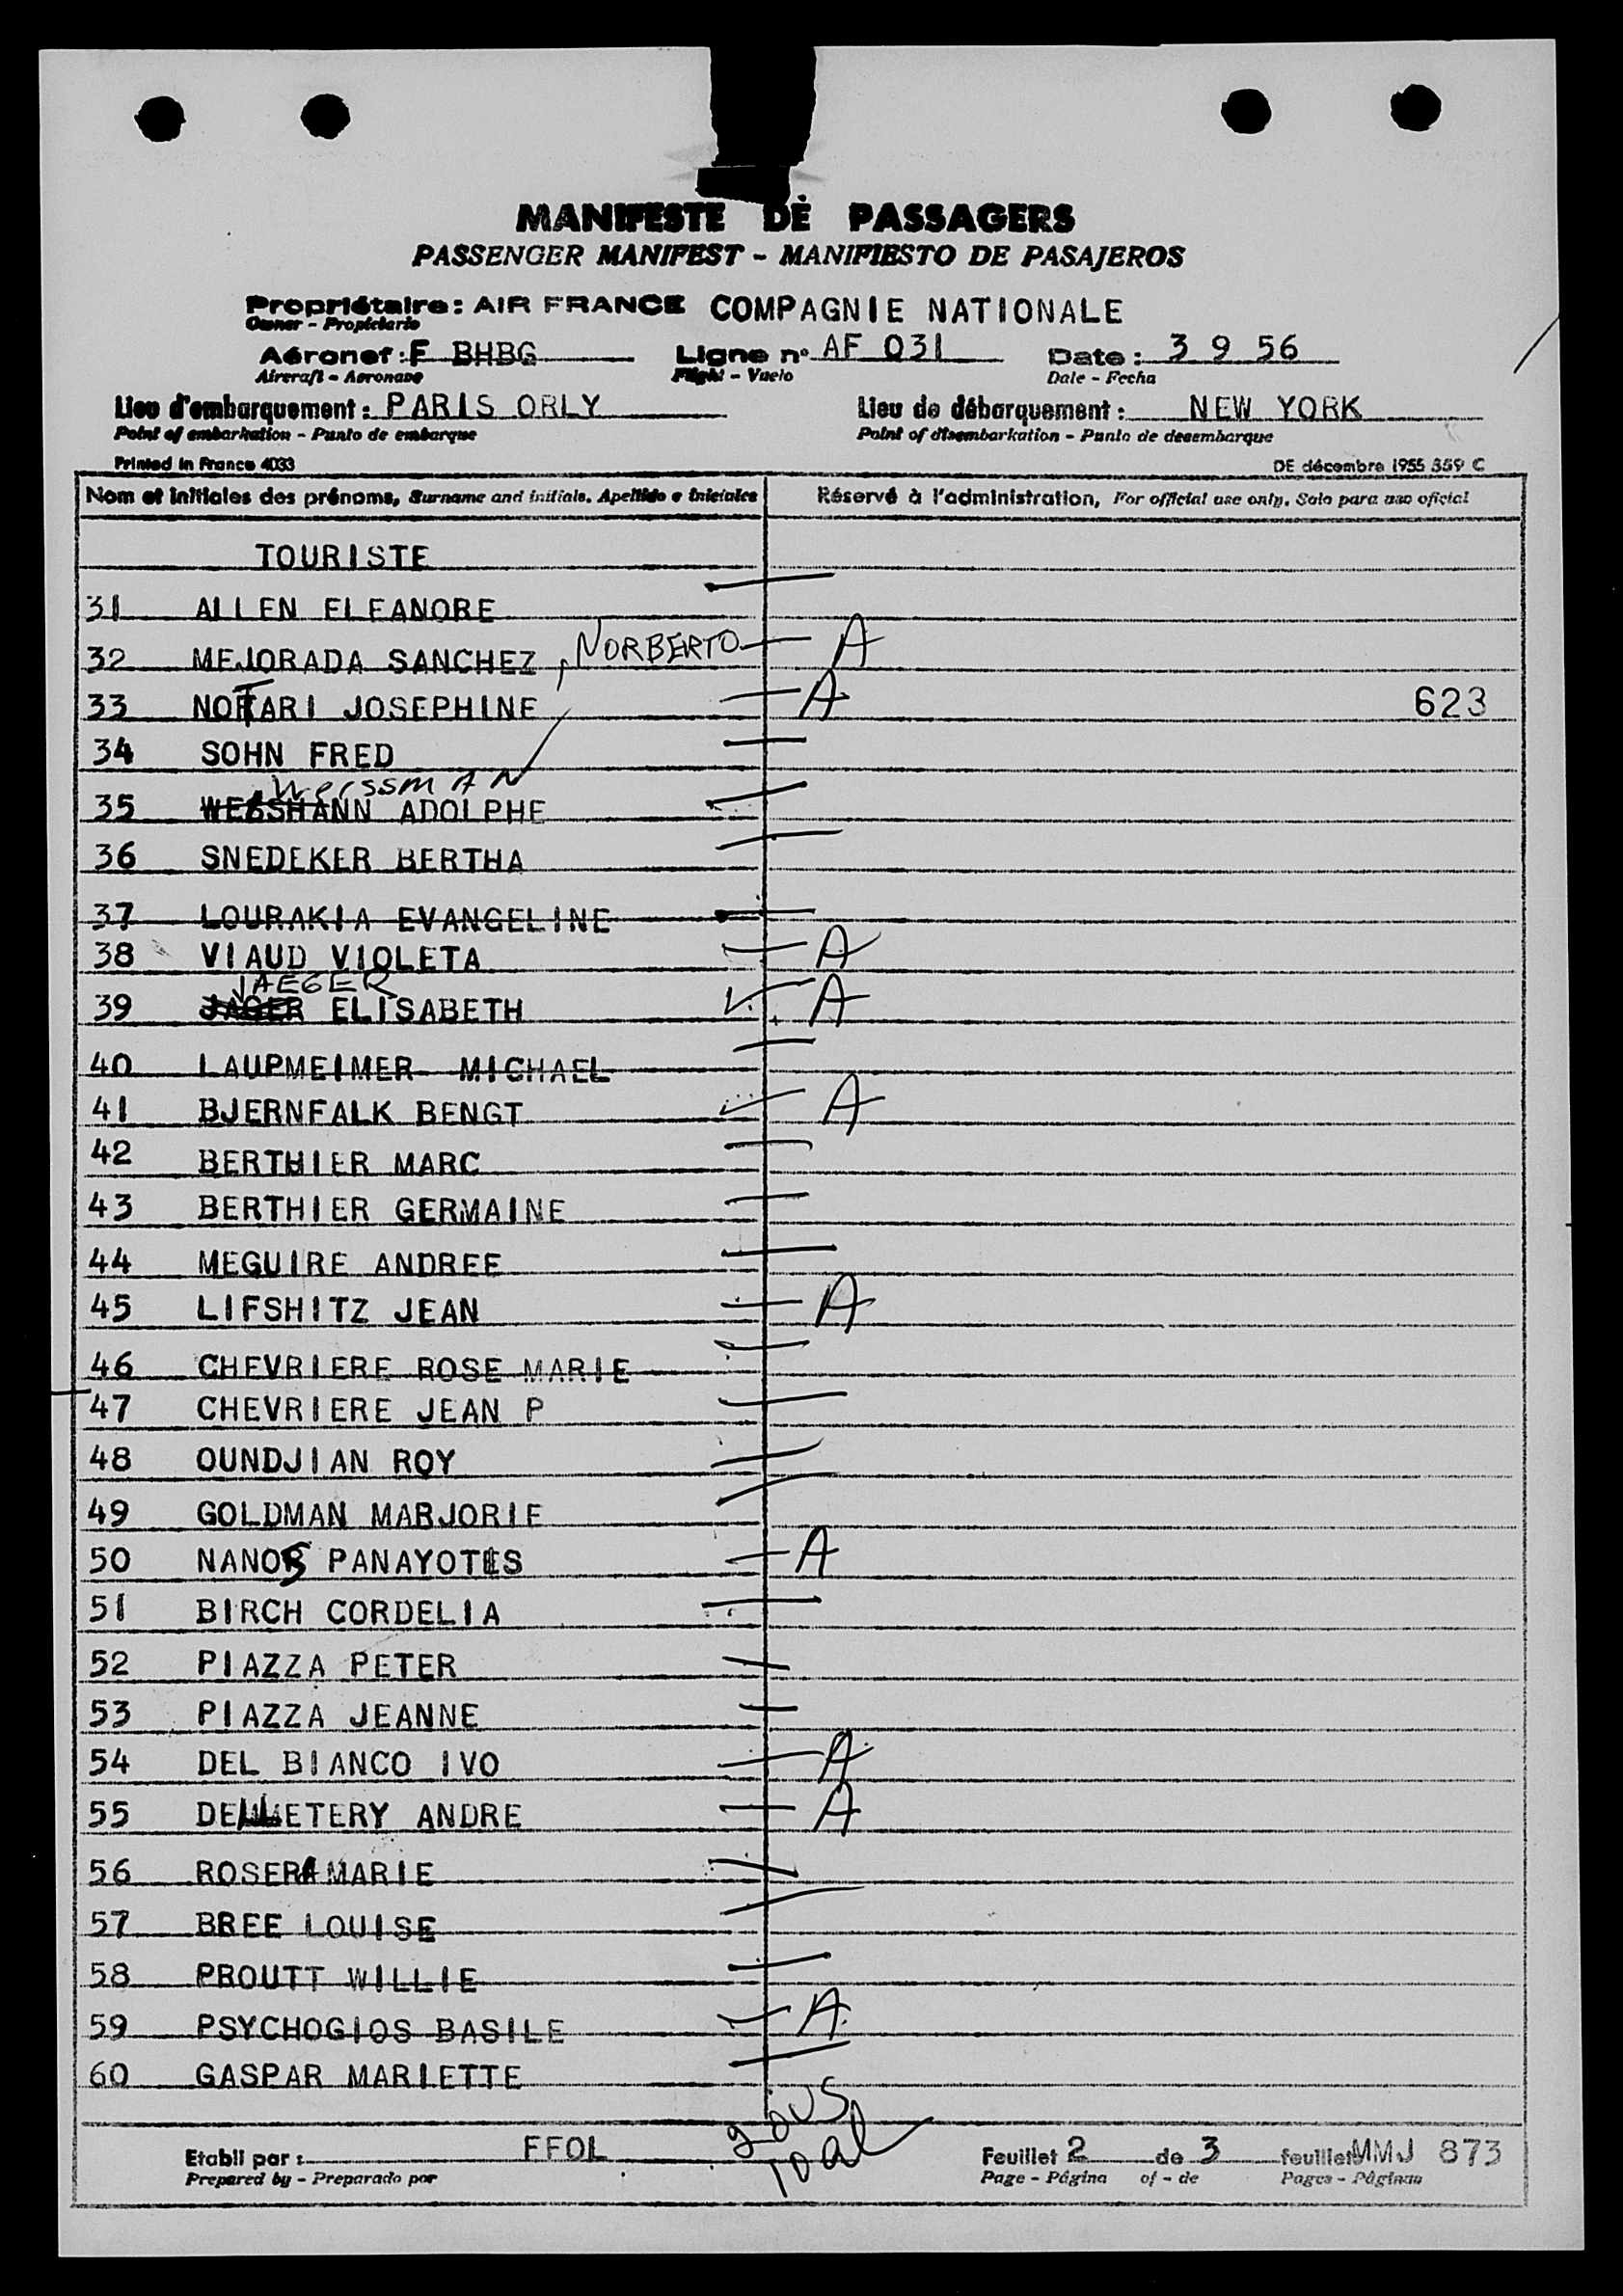 MANIFESTE DE PASSAGERS
PASSENGER MANIFEST - MANIFIESTO DE PASAJEROS
Propriétaire : AIR FRANCE COMPAGNIE NATIONALE
Owner - Propietario
Aéronef : F BHBG Ligne n° AF 031 Date : 3 9 56
Aircraft - Aeronave Flight - Vuelo Date - Fecha
Lieu d'embarquement : PARIS ORLY Lieu de débarquement : NEW YORK
Point of embarkation - Punto de embarque Point of disembarkation - Punto de desembarque
Printed in France 4033 DE décembre 1955 359 C
Nom et initiales des prénoms, Surname and initials. Apellido e iniciales Réservé à l'administration, For official use only. Solo para uso oficial
TOURISTE
31 ALLEN ELEANORE
32 MEJORADA SANCHEZ , NORBERTO A
33 NOTARI JOSEPHINE A 623
34 SOHN FRED
Weissman
35 ADOLPHE
36 SNEDEKER BERTHA
37 LOURAKIA EVANGELINE
38 VIAUD VIOLETA A
JAEGER
39 JAGER ELISABETH A
40 LAUPMEIMER MICHAEL
41 BJERNFALK BENGT A
42 BERTHIER MARC
43 BERTHIER GERMAINE
44 MEGUIRE ANDREE
45 LIFSHITZ JEAN A
46 CHEVRIERE ROSE MARIE
47 CHEVRIERE JEAN P
48 OUNDJIAN ROY
49 GOLDMAN MARJORIE
50 NANOS PANAYOTIS A
51 BIRCH CORDELIA
52 PIAZZA PETER
53 PIAZZA JEANNE
54 DEL BIANCO IVO A
55 ANDRE A
56 MARIE
57 BREE LOUISE
58 PROUTT WILLIE
59 PSYCHOGIOS BASILE A
60 GASPAR MARIETTE
20 US
10 al
Etabli par : FFOL Feuillet 2 de 3 feuillets MMJ 873
Prepared by - Preparado por Page - Página of - de Pages - Páginas